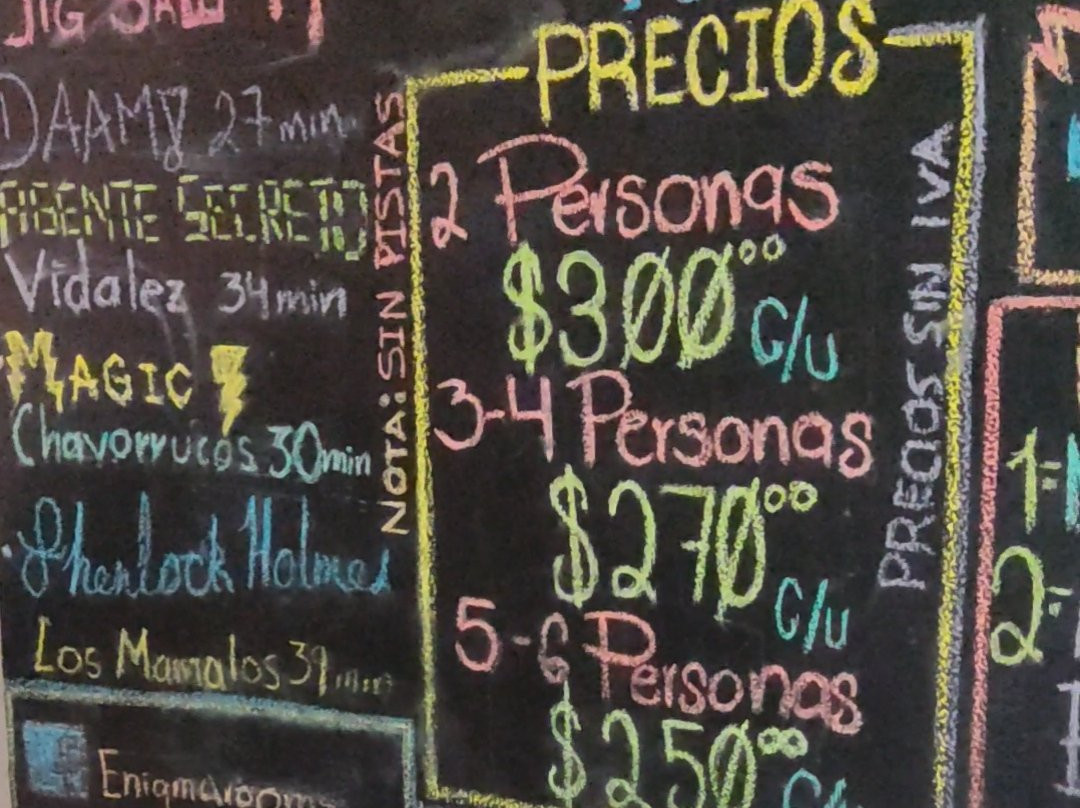 JIG SAW
DAAMY 27 min
AGENTE SECRETO
Vidalez 34 min
MAGIC
Chavorrucos 30 min
Sherlock Holmes
Los Mamalos 39 min
Enigmarooms
NOTA: SIN PISTAS
PRECIOS
2 Personas
$300⁰⁰ c/u
3-4 Personas
$270⁰⁰ c/u
5-6 Personas
$250⁰⁰ c/u
PRECIOS SIN IVA
1=
2=